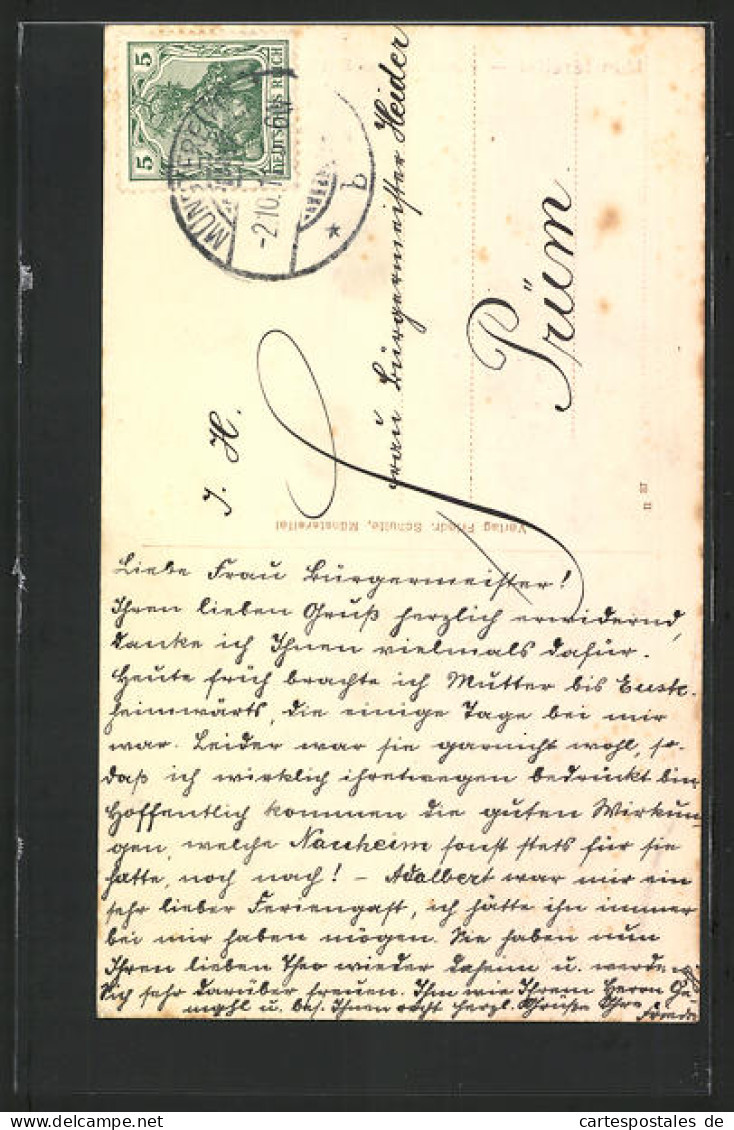 5 5
DEUTSCHES REICH
MÜNSTEREI
-2.10.
* b
J. H.
Frau Bürgermeister Heider
Prüm.
Verlag Friedr. Schulte, Münstereifel
Liebe Frau Bürgermeister!
Ihren lieben Gruß herzlich erwidernd,
danke ich Ihnen vielmals dafür.
Heute früh brachte ich Mutter bis Eusk.
heimwärts, die einige Tage bei mir
war. Leider war sie garnicht wohl, so-
daß ich wirklich ihretwegen bedrückt bin.
Hoffentlich kommen die guten Wirkun-
gen, welche Nauheim sonst stets für sie
hatte, noch nach! – Adalbert war mir ein
sehr lieber Feriengast, ich hätte ihn immer
bei mir haben mögen. Sie haben nun
Ihren lieben Theo wieder daheim u. werden
sich sehr darüber freuen. Ihm wie Ihrem Herrn Ge-
mahl u. bes. Ihnen recht herzl. Grüße Ihre
cartespostales de